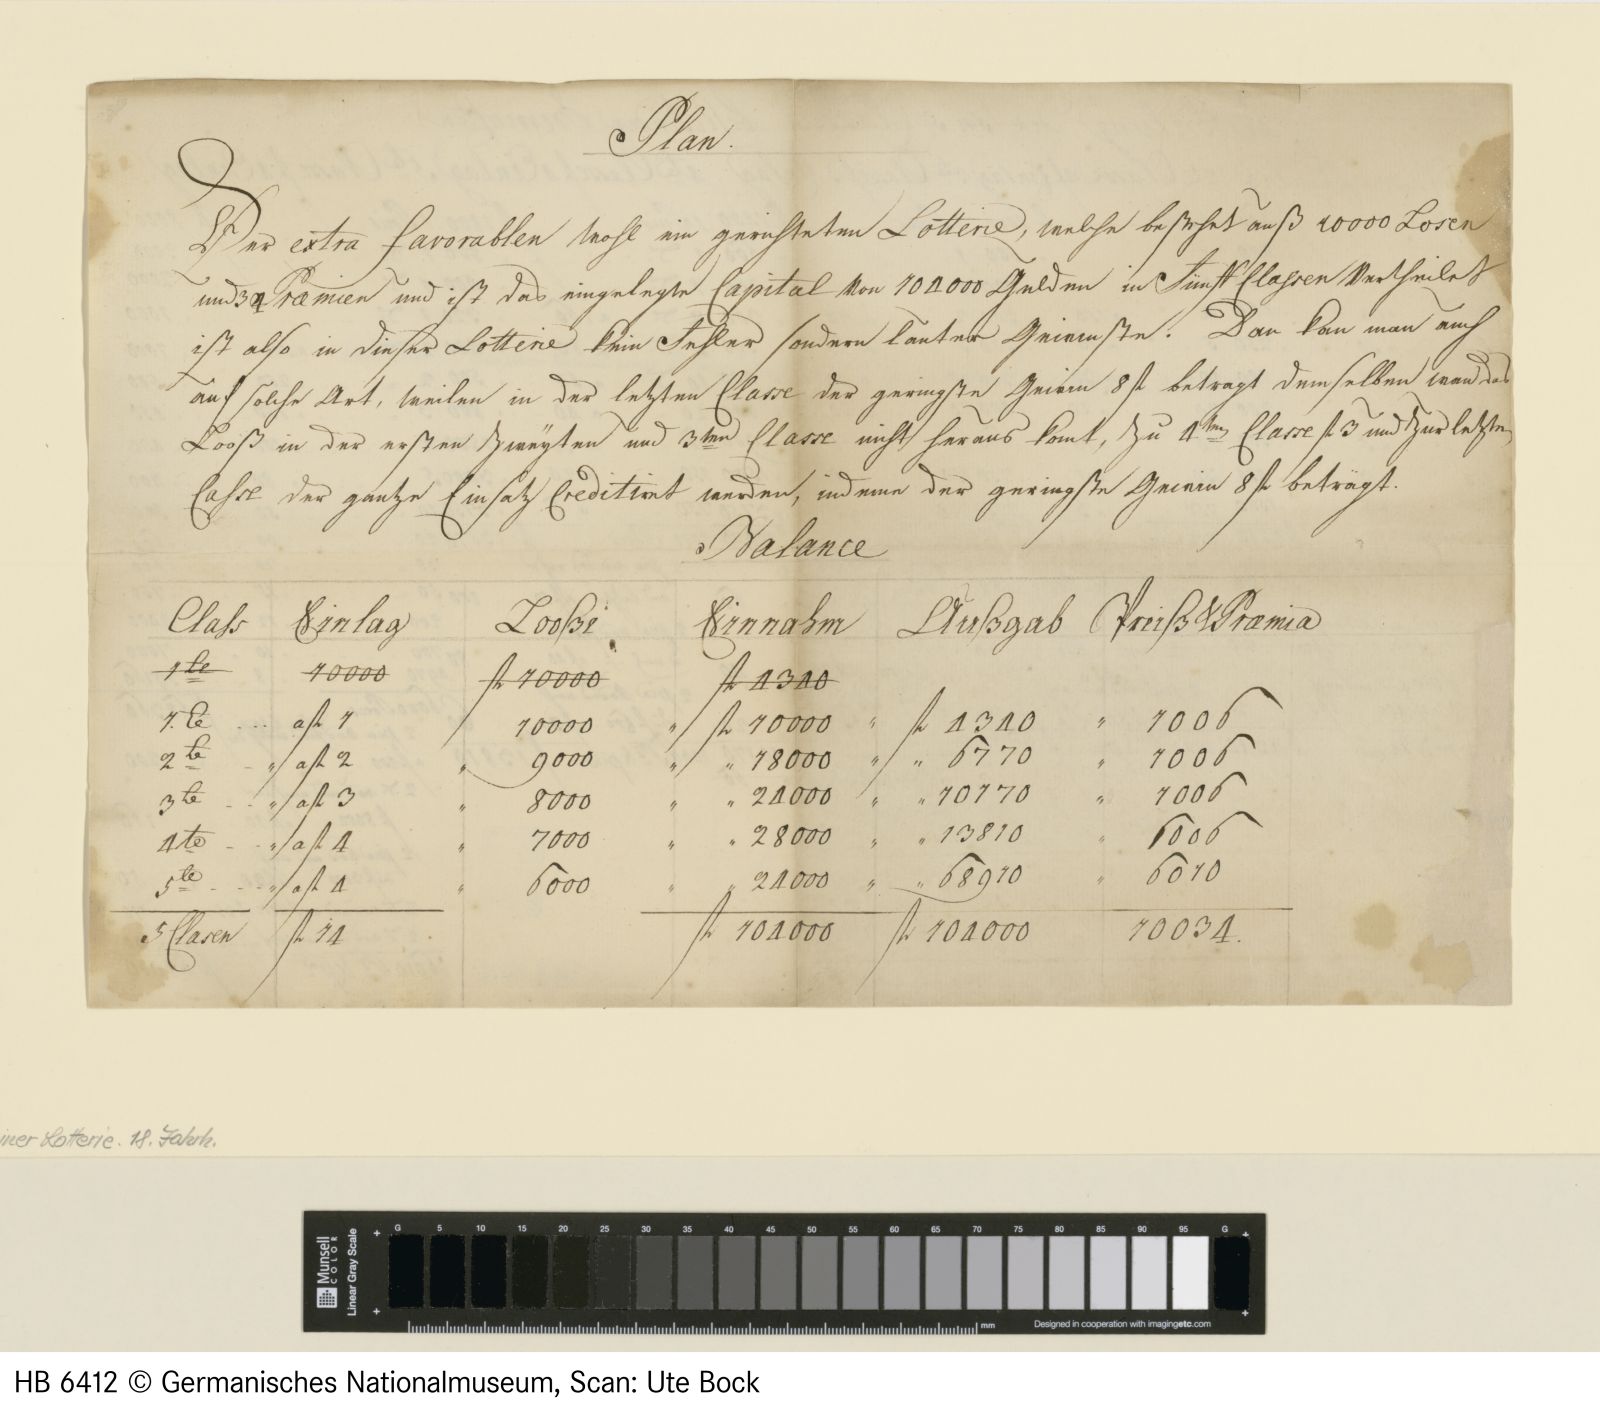 Plan.
Der extra favorablen wohl ein gerichteten Lotterie, welche bestehet auß 10000 Losen
und 34 Præmien und ist das eingelegte Capital von 104000 Gulden in Fünff Classen Vertheilet
ist also in dieser Lotterie kein Fehler sondern lauter Gewinste. Dan kan man auch
auf solche Art, weilen in der letzten Classe der geringste Gewin 8 fl betragt demselben wan das
Looß in der ersten Zweÿten und 3ten Classe nicht heraus komt, zu 4ten Classe fl 3 und Zur letzten
Casse der gantze Einsatz Creditiret werden, indeme der geringste Gewin 8 fl beträgt.
Balance
Class Einlag Looße Einnahm Außgab Preiß & Præmia
1te 10000 fl 10000 fl 4340
1te .... a fl 1 10000 " fl 10000 " fl 4340 " 1006
2te - " a fl 2 " 9000 " " 18000 " " 6770 " 1006
3te - - " a fl 3 " 8000 " " 24000 " " 10170 " 1006
4te - - " a fl 4 " 7000 " " 28000 " " 13810 " 1006
5te - - - " a fl 4 " 6000 " " 24000 " " 68910 " 6010
5 Clasen fl 14 fl 104000 fl 104000 10034.
iner Lotterie. 18. Jahrh.
Munsell COLOR
Linear Gray Scale
G 5 10 15 20 25 30 35 40 45 50 55 60 65 70 75 80 85 90 95 G
mm Designed in cooperation with imagingetc.com
HB 6412 © Germanisches Nationalmuseum, Scan: Ute Bock